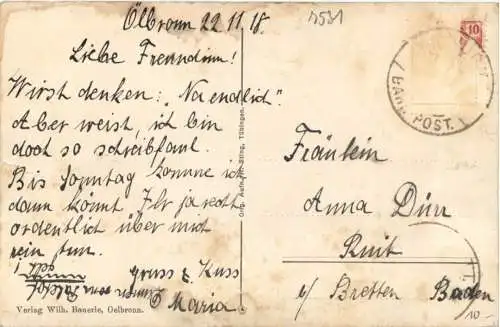 Ölbronn 22.11.18.
Liebe Freundin!
Wirst denken: „Na endlich".
Aber weist, ich bin
doch so schreibfaul.
Bis Sonntag komme ich
dann könnt Ihr ja recht
ordentlich über mich
rein tun.
Gruss & Kuss
Maria
Verlag Wilh. Bauerle, Oelbronn.
7531
10
BAHNPOST.
Fräulein
Anna Dürr
Ruit
b/ Bretten Baden
10-